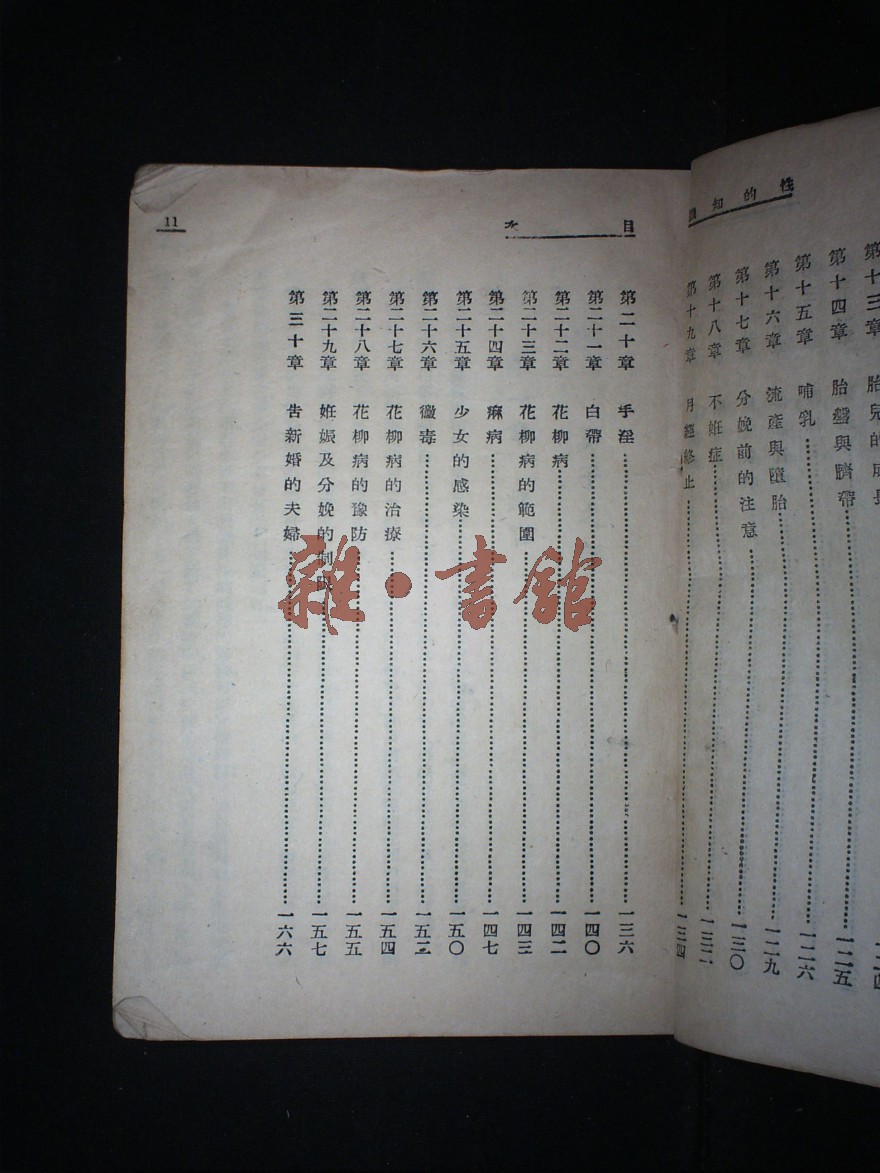 性的知識
第十三章 胎兒的成長
第十四章 胎盤與臍帶……一二五
第十五章 哺乳……一二六
第十六章 流產與墮胎……一二九
第十七章 分娩前的注意……一三〇
第十八章 不姙症……一三二
第十九章 月經終止……一三四
目次
11
第二十章 手淫……一三六
第二十一章 白帶……一四〇
第二十二章 花柳病……一四二
第二十三章 花柳病的範圍……一四三
第二十四章 痳病……一四七
第二十五章 少女的感染……一五〇
第二十六章 黴毒……一五二
第二十七章 花柳病的治療……一五四
第二十八章 花柳病的豫防……一五五
第二十九章 姙娠及分娩的制限……一五七
第三十章 告新婚的夫婦……一六六
雜·書館